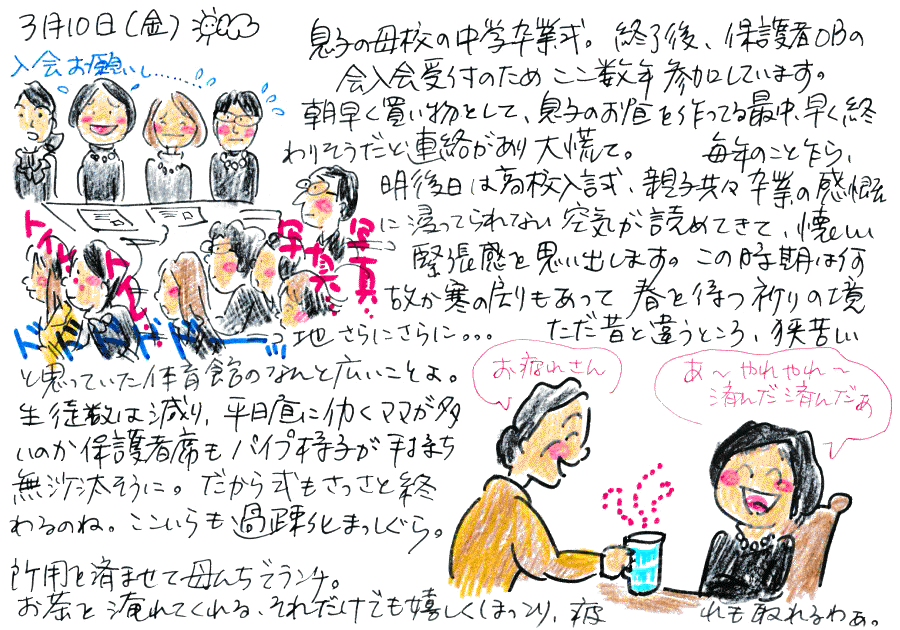 3月10日(金)
息子の母校の中学卒業式。終了後、保護者OBの
会入会受付のためここ数年参加しています。
朝早く買い物として、息子のお昼を作ってる最中、早く終
わりそうだと連絡があり大慌て。 毎年のこと乍ら、
明後日は高校入試、親子共々卒業の感慨
に浸ってられない空気が読めてきて、懐しい
緊張感を思い出します。この時期は何
故か寒の戻りもあって 春を待つ祈りの境
地さらにさらに… ただ昔と違うところ、狭苦しい
と思っていた体育館のなんと広いことよ。
生徒数は減り、平日昼に働くママが多
いのか保護者席もパイプ椅子が手持ち
無沙汰そうに。だから式もさっさと終
わるのね。ここいらも過疎化まっしぐら。
所用を済ませて母んちでランチ。
お茶を淹れてくれる、それだけでも嬉しくほっこり、疲 れも取れるわぁ。
入会お願いし……
トイレ
トイレ
写真
写真
ドドドドドーッ
お疲れさん
あ〜やれやれ〜
済んだ済んだぁ